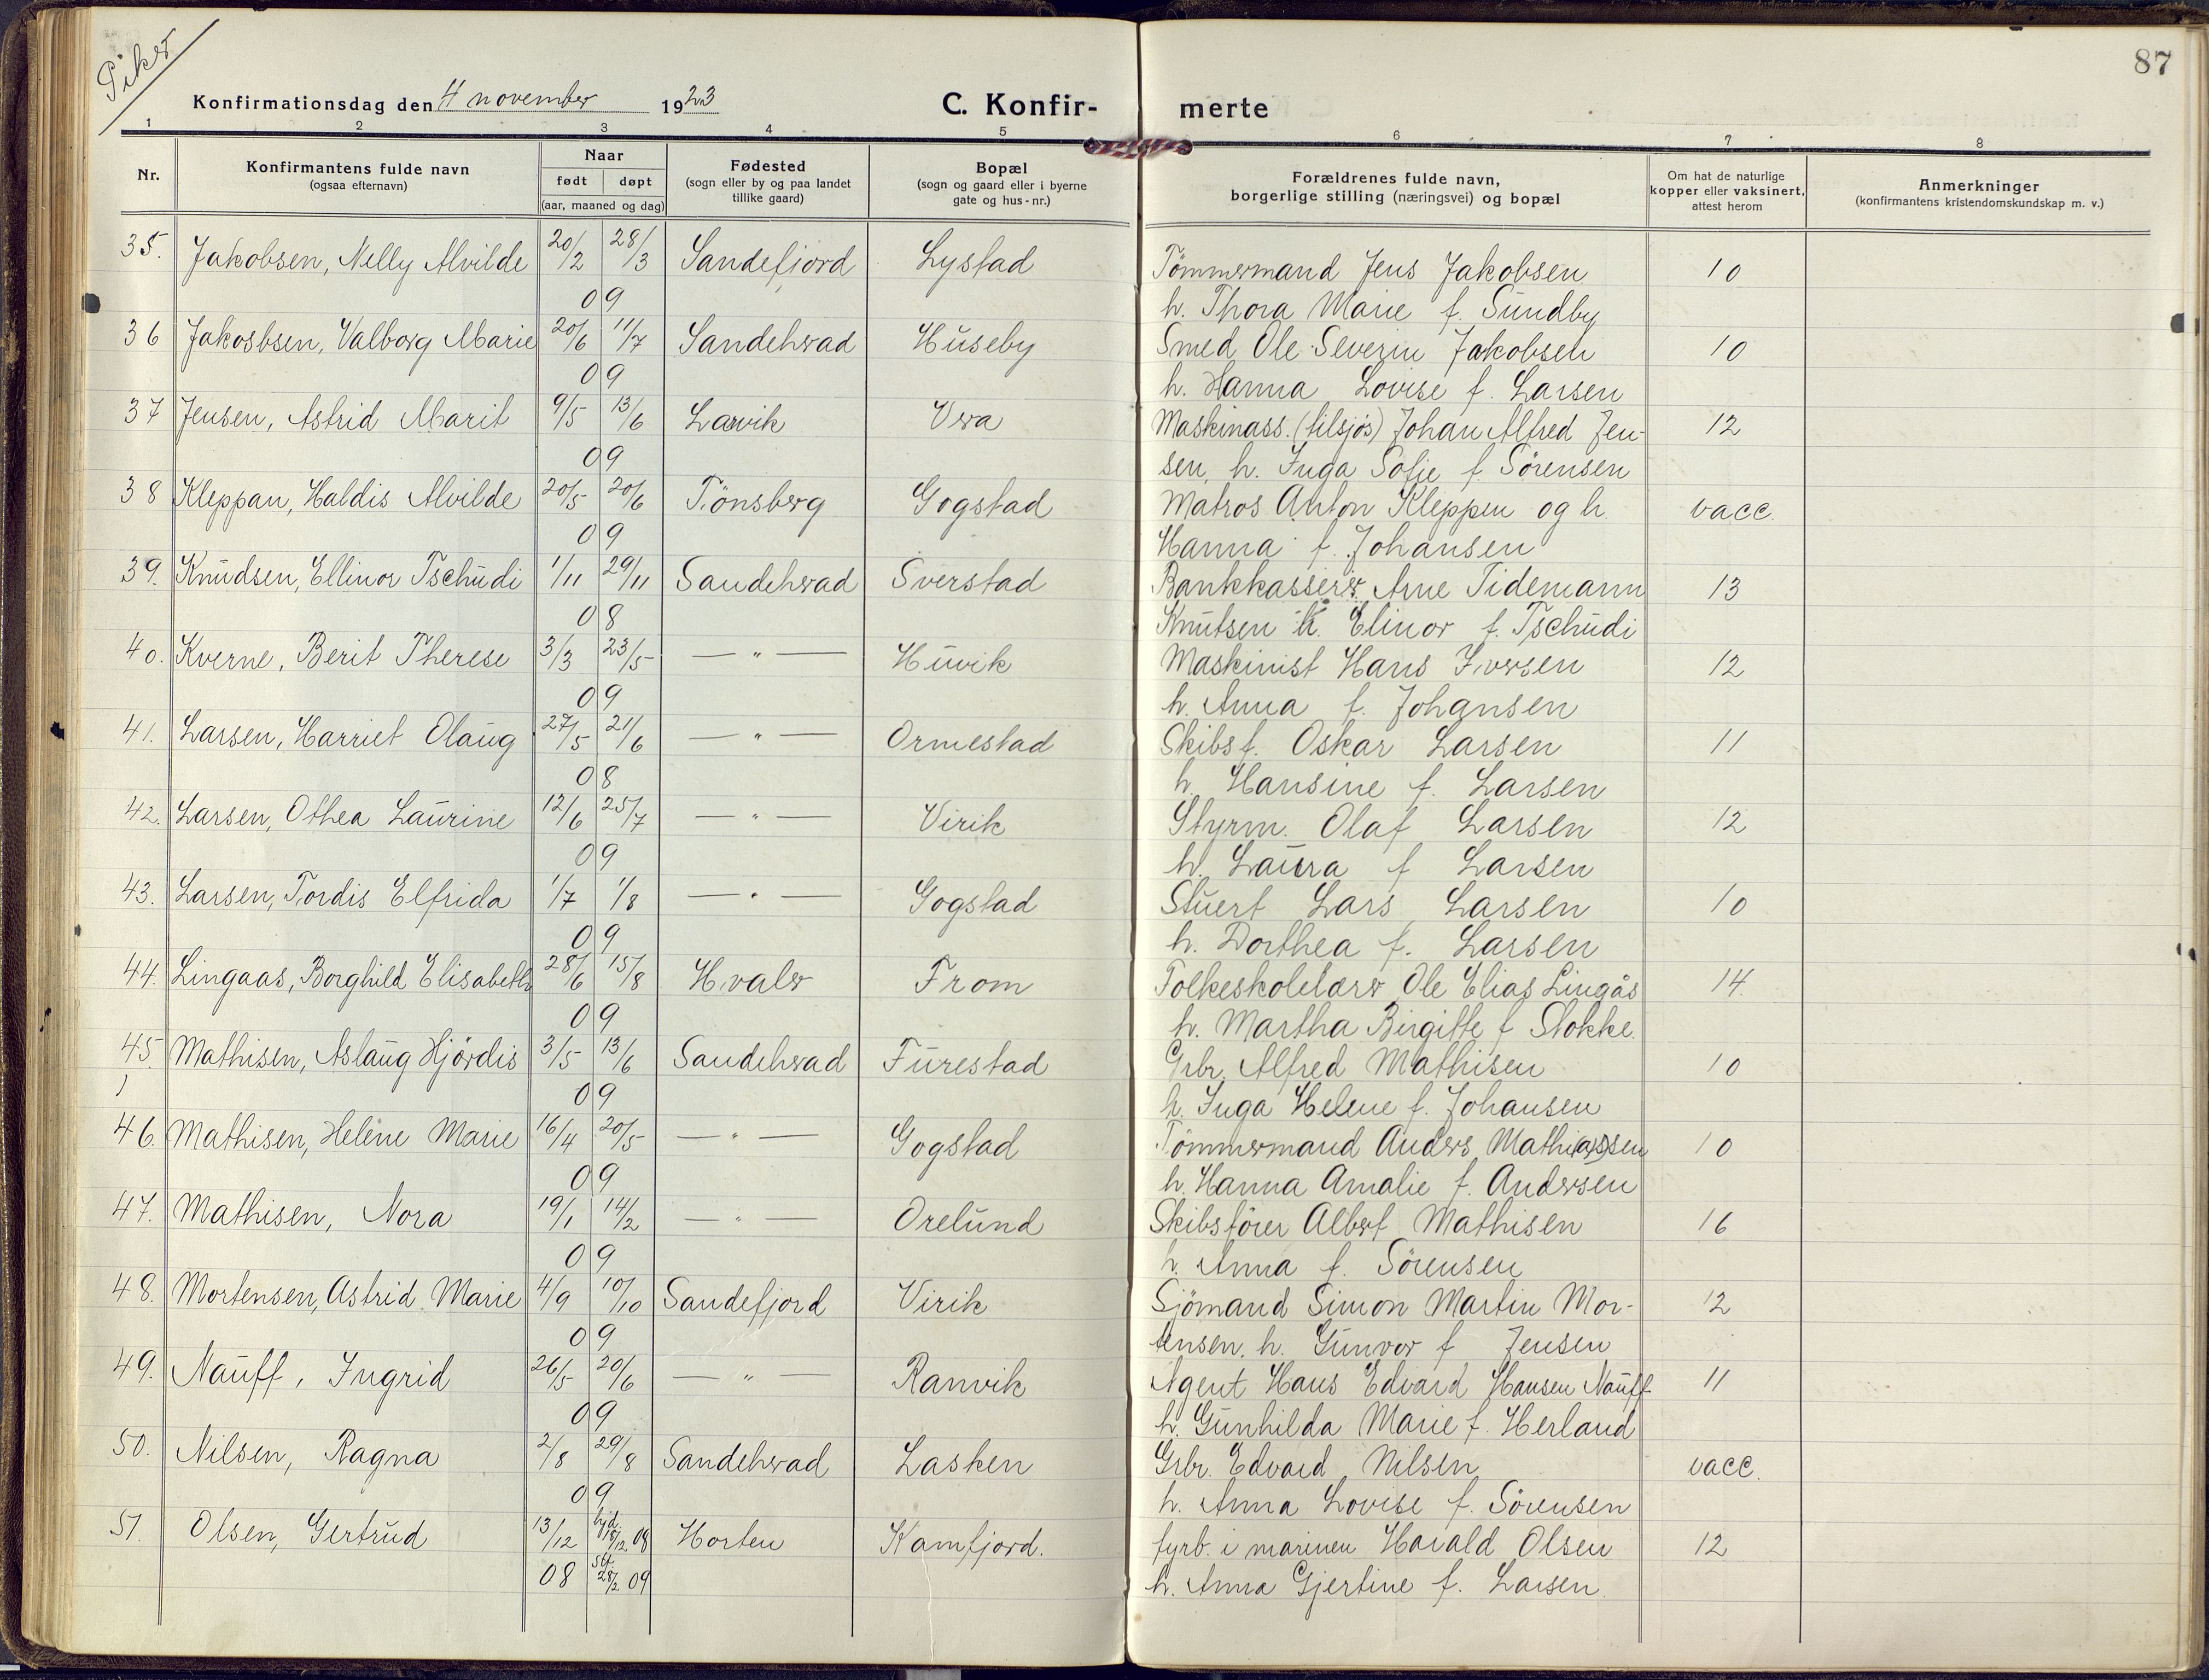 Piker
87
Konfirmationsdag den 4 november 1923
C. Konfir- merte
1 2 3 4 5 6 7 8
Nr.
Konfirmantens fulde navn
(ogsaa efternavn)
Naar
født døpt
(aar, maaned og dag)
Fødested
(sogn eller by og paa landet
tillike gaard)
Bopæl
(sogn og gaard eller i byerne
gate og hus-nr.)
Forældrenes fulde navn,
borgerlige stilling (næringsvei) og bopæl
Om hat de naturlige
kopper eller vaksinert,
attest herom
Anmerkninger
(konfirmantens kristendomskundskap m. v.)
35. Jakobsen, Nelly Alvilde 20/2 28/3 Sandefjord Lystad Tömmermand Jens Jakobsen 10
09 h. Thora Marie f. Sundby
36 Jakosbsen, Valborg Marie 20/6 11/7 Sandehrad Huseby Smed Ole Severin Jakobsen 10
09 h. Hanna Lovise f. Larsen
37 Jensen, Astrid Marit 9/5 13/6 Larvik Vera Maskinass. (tilsjös) Johan Alfred Jen- 12
09 sen, h. Inga Sofie f Sörensen
38 Kleppan, Haldis Alvilde 20/5 20/6 Tönsberg Gogstad Matros Anton Kleppen og h. vacc.
09 Hanna f. Johansen
39. Knudsen, Ellinor Tschudi 1/11 29/11 Sandehrad Sverstad Bankkasserer Arne Tidemann 13
08 Knutsen h. Elinor f. Tschudi
40. Kverne, Berit Therese 3/3 23/5 — " — Huvik Maskinist Hans Iversen 12
09 h. Anna f. Johansen
41. Larsen, Harriet Olaug 27/5 21/6 — " — Ormestad Skibsf. Oskar Larsen 11
08 h. Hansine f. Larsen
42. Larsen, Othea Laurine 12/6 25/7 — " — Virik Styrm. Olaf Larsen 12
09 h. Laura f Larsen
43. Larsen, Tordis Elfrida 1/7 1/8 — " — Gogstad Stuert Lars Larsen 10
09 h. Dorthea f. Larsen
44. Lingaas, Borghild Elisabeth 28/6 15/8 Hvaler From Folkeskolelærer Ole Elias Lingås 14.
09 h. Martha Birgitte f Stokke.
45. Mathisen, Aslaug Hjördis 3/5 13/6 Sandehrad Furestad Grbr. Alfred Mathisen 10
09 h. Inga Helene f. Johansen
46. Mathisen, Helene Marie 16/4 20/5 — " — Gogstad Tömmermand Anders Mathi(as)sen 10
09 h. Hanna Amalie f. Andersen
47. Mathisen, Nora 19/1 14/2 — " — Orelund Skibsförer Albert Mathisen 16
09 h. Anna f. Sörensen
48. Mortensen, Astrid Marie 4/9 10/10 Sandefjord Virik Sjömand Simon Martin Mor- 12
09 tensen, h. Gunvor f Jensen
49. Nauff, Ingrid 26/5 20/6 — " — Ranvik Agent Hans Edvard Hansen Nauff 11
09 h. Gunhilda Marie f. Herland
50. Nilsen, Ragna 2/8 29/8 Sandehrad Lasken Grbr. Edvard Nilsen vacc.
09 h. Anna Lovise f. Sörensen
51. Olsen, Gertrud 13/12 hjd. 18/12 08 Horten Kamfjord. fyrb. i marinen Harald Olsen 12
08 st. 28/2 09 h. Anna Gjertine f. Larsen.